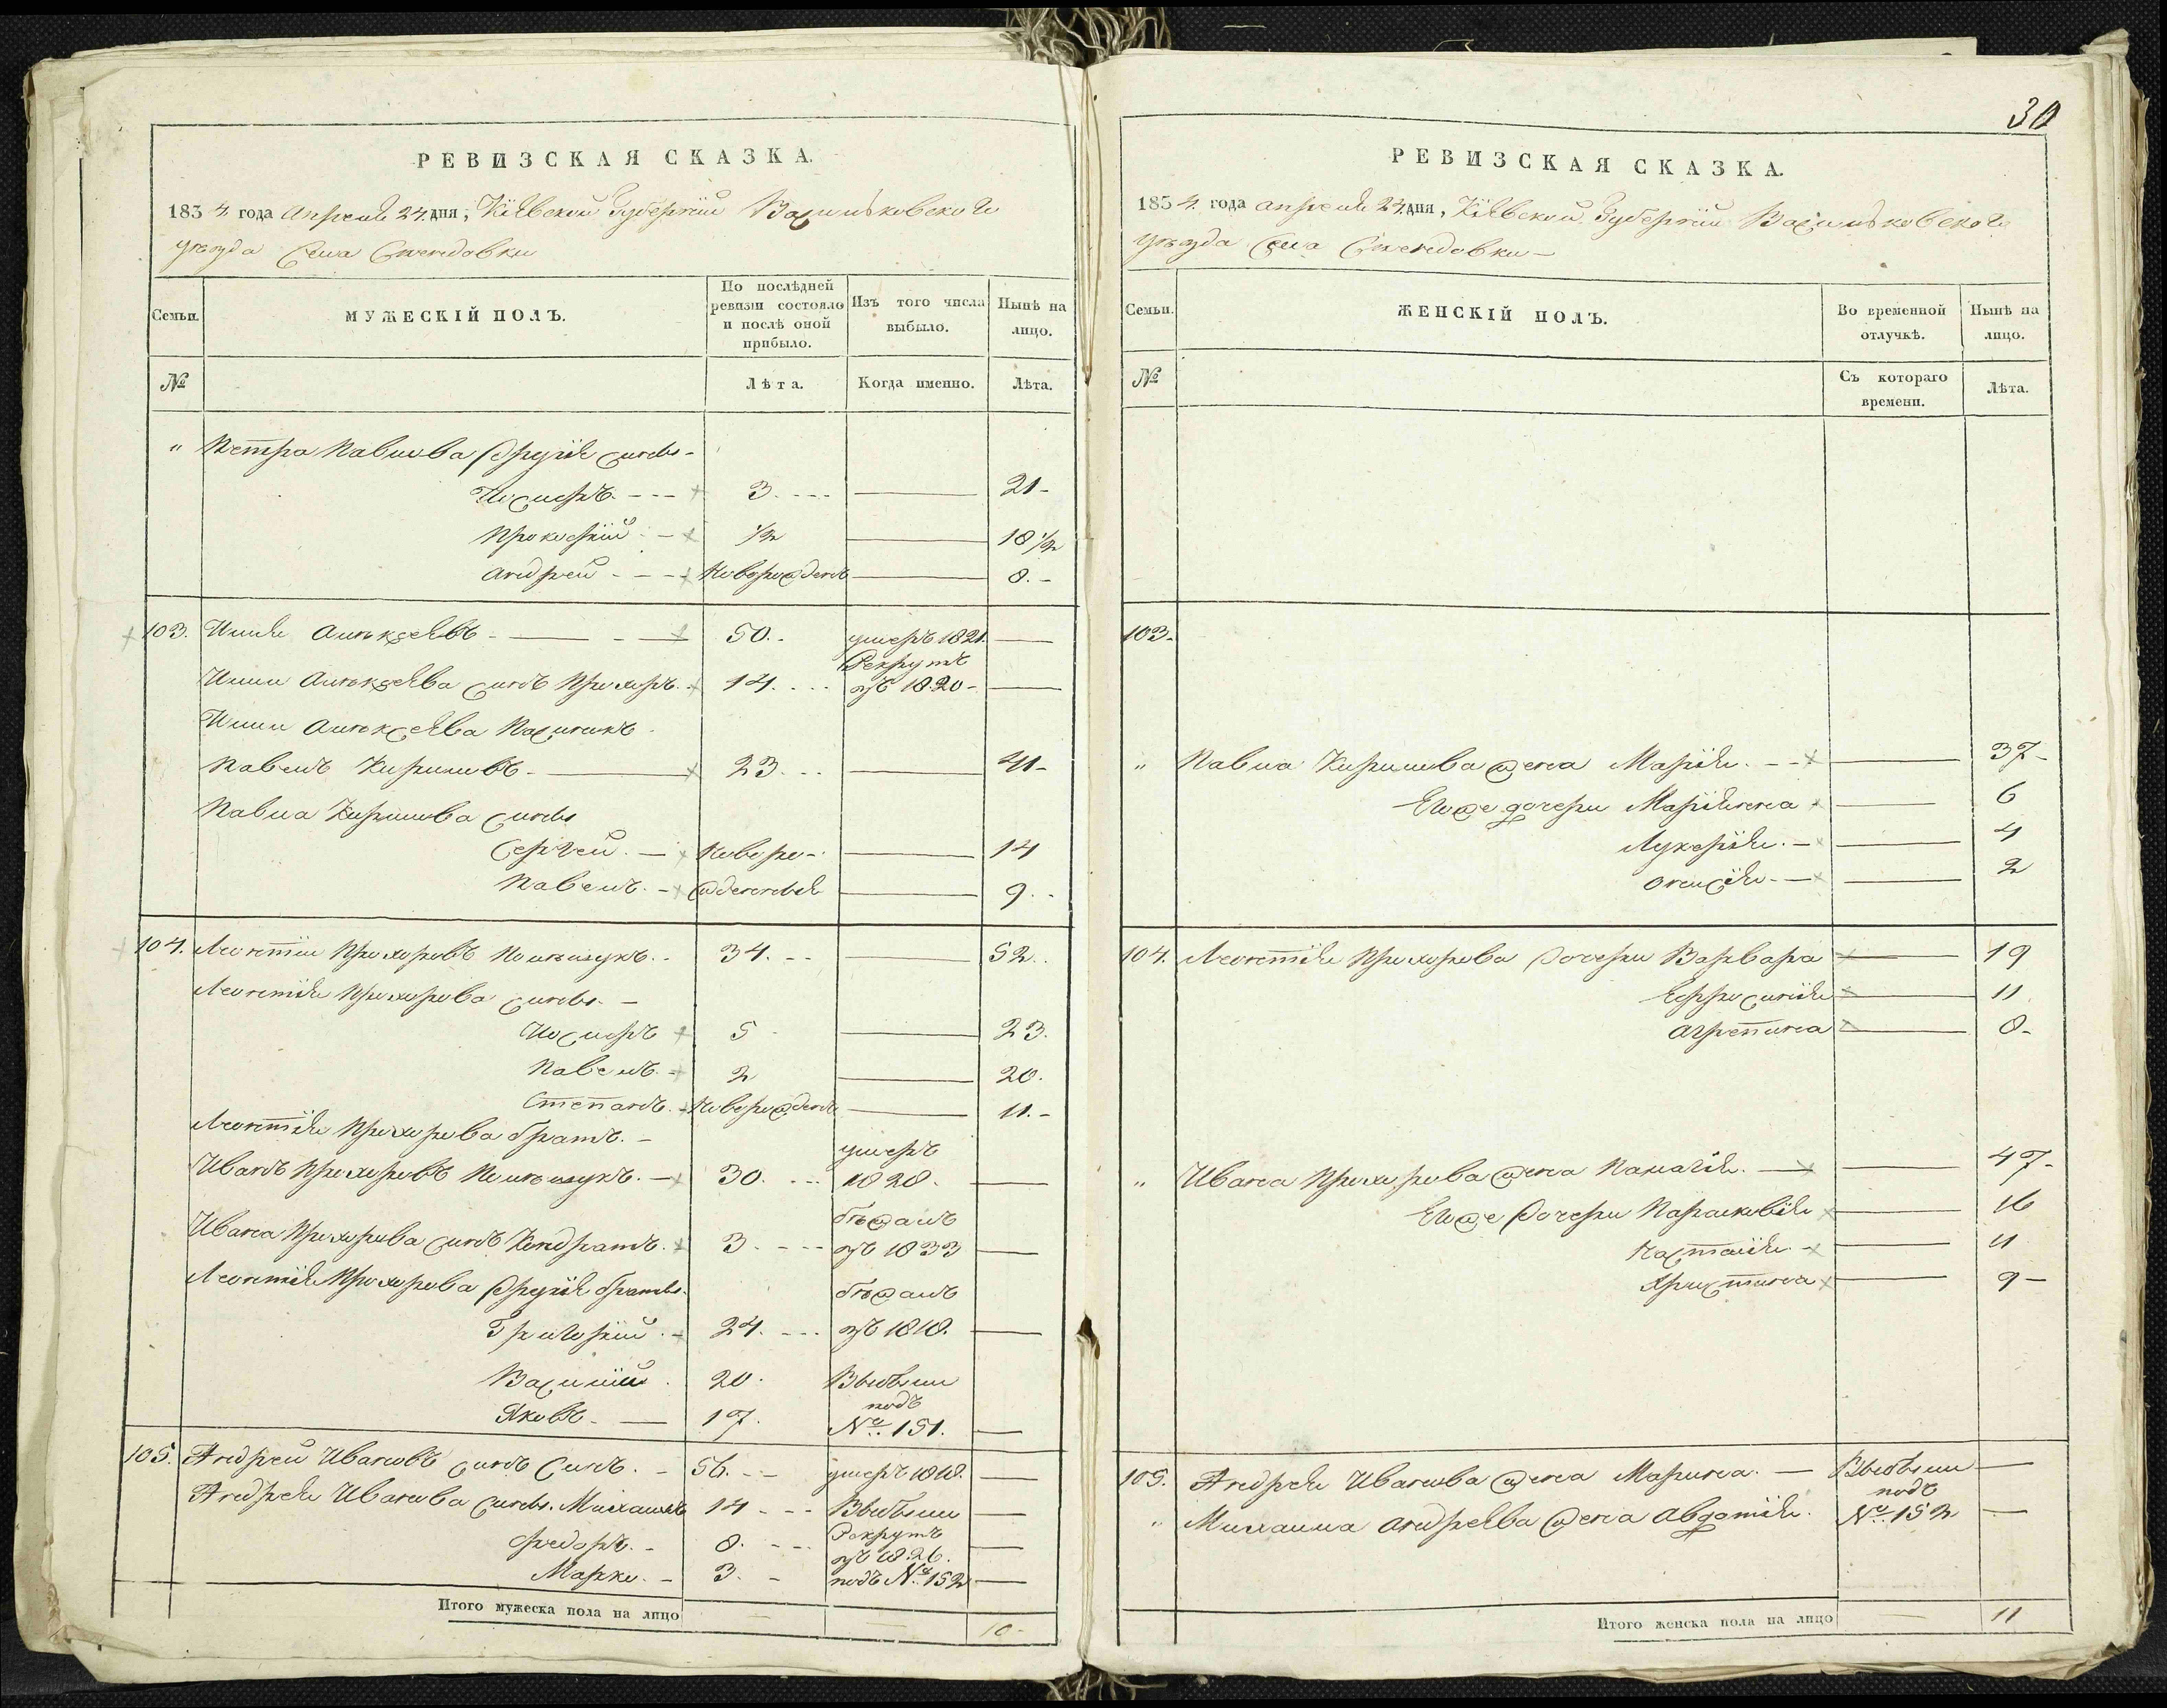 РЕВИЗСКАЯ СКАЗКА.
1834 года апреля 24 дня, Кіевской Губерніи Васильковскаго
уѣзда Села
Семьи.
МУЖЕСКІЙ ПОЛЪ.
По послѣдней ревизіи состояло и послѣ оной прибыло.
Изъ того числа выбыло.
Нынѣ на лицо.
№
Лѣта.
Когда именно.
Лѣта.
" Петра Павлова другія сыновья
3 21
Прокофій 1/2 18 1/2
Андрей Новорожденъ 8
103. Илля Алѣксѣевъ 50 умеръ 1821.
Илли Алѣксѣева сынъ Прохоръ 14 Рекрутъ въ 1820
Илли Алѣксѣева Пасынокъ
Павелъ Кириловъ 23 41
Павла Кирилова сыновья
Сергей Новоро- 14
Павелъ жденные 9
104. Леонтій Прохоровъ 34 52
Леонтія Прохорова сыновья
5 23
Павелъ 2 20
Степанъ Новорожденъ 11
Леонтія Прохорова братъ
Иванъ Прохоровъ 30 умеръ 1828
Ивана Прохорова сынъ Кондратъ 3 бѣжалъ въ 1833
Леонтія Прохорова другія братья
Григорій 24 бѣжалъ въ 1818.
Василій 20 Выбыли
Яковъ 17 подъ №. 151.
105. Андрей Ивановъ сынъ 56 умеръ 1818.
Андрея Иванова сыновья Михаилъ 14 Выбыли
Федоръ 8 Рекрутъ въ 1826.
Марко 3 подъ №. 152
Итого мужеска пола на лицо 10
30
РЕВИЗСКАЯ СКАЗКА.
1834 года апреля 24 дня, Кіевской Губерніи Васильковскаго
уѣзда Села
Семьи.
ЖЕНСКІЙ ПОЛЪ.
Во временной отлучкѣ.
Нынѣ на лицо.
№
Съ котораго времени.
Лѣта.
103.
" Павла Кирилова жена Марія 37
Егоже дочери Маріянна 6
Лукерія 4
2
104. Леонтія Прохорова дочери Варвара 19
Ефросинія 11
Агрепина 8
" Ивана Прохорова жена Палагія 47
Егоже дочери Парасковія 16
Настасія 11
Христина 9
105. Андрея Иванова жена Марина Выбыли
" Михаила Андреева жена Авдотія подъ №. 152
Итого женска пола на лицо 11